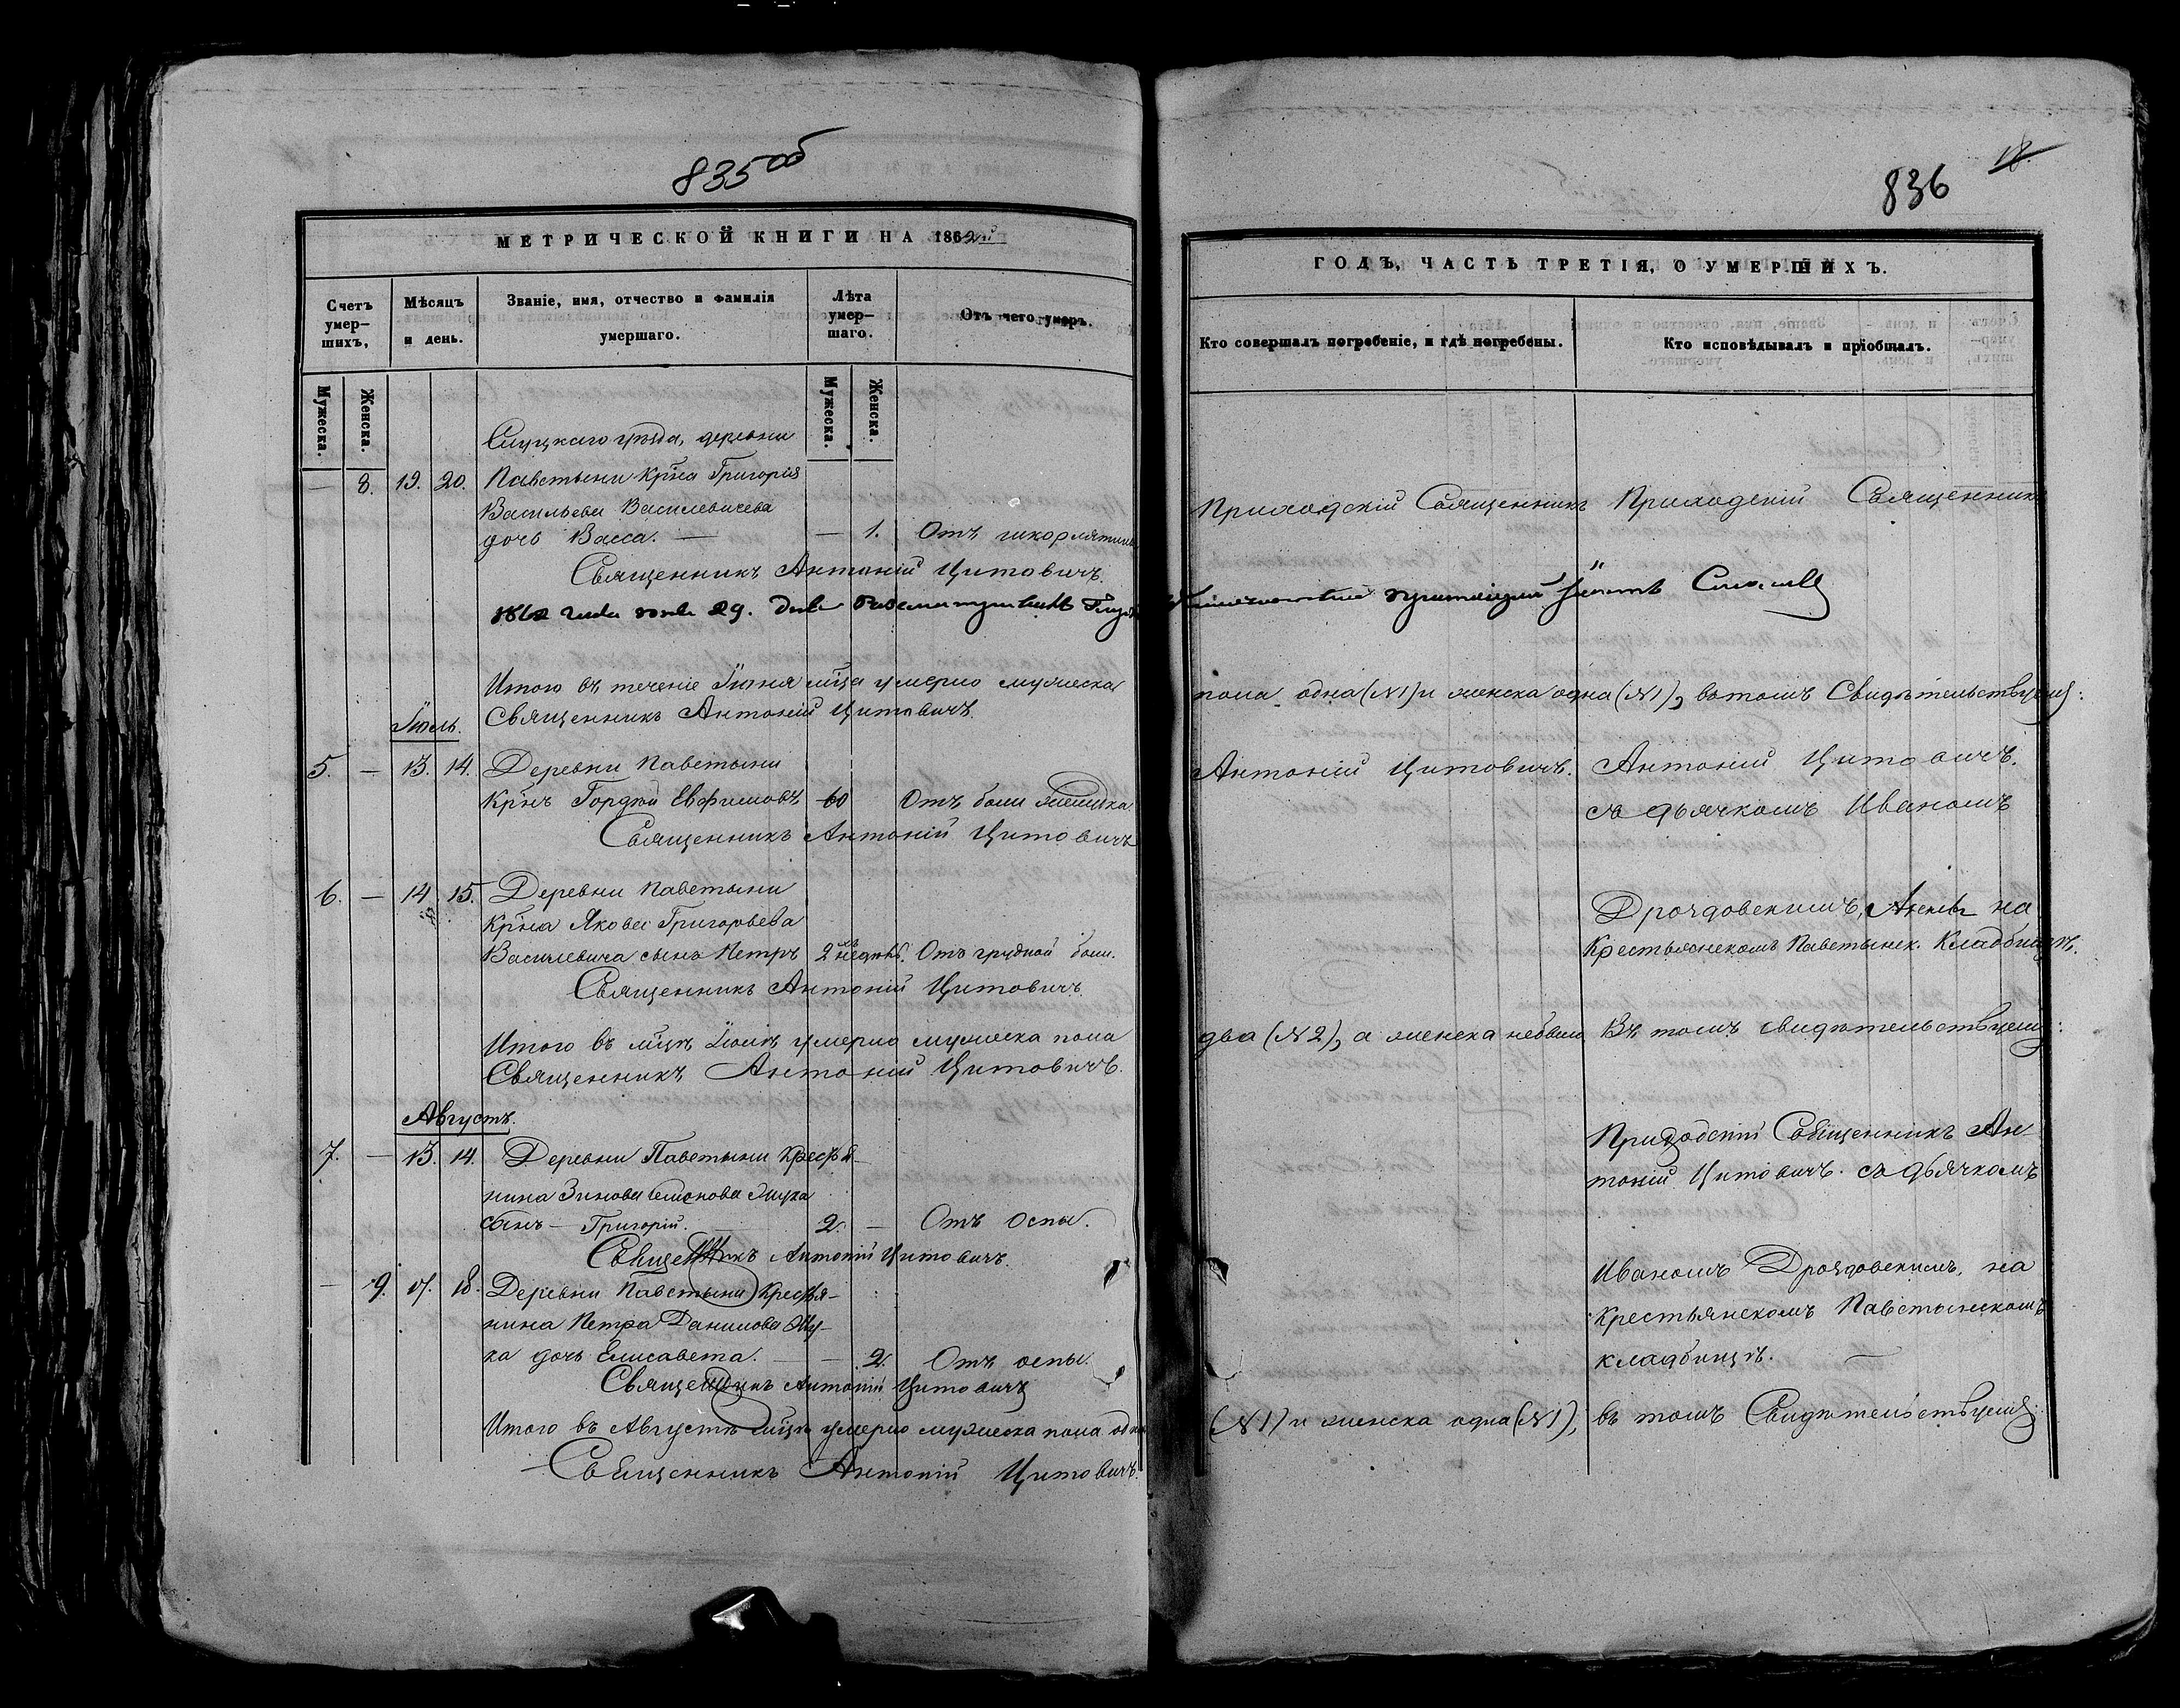 835об
МЕТРИЧЕСКОЙ КНИГИ НА 1862й
Счетъ умер-шихъ,
Мѣсяцъ и день.
Званіе, имя, отчество и фамилія умершаго.
Лѣта умер-шаго.
Отъ чего умеръ.
Мужеска.
Женска.
Мужеска.
Женска.
Слуцкаго уѣзда, деревни
— 8. 19. 20. Паветыни Кр̃на Григорія
Васильева Василевичева
дочь Васса. — — 1. Отъ
Священникъ Антоній Цитовичъ.
1862 года 29. дня
Итого въ теченіе Іюня мц̃а умерло мужеска
Іюль. Священникъ Антоній Цитовичъ.
5. — 13. 14. Деревни Паветыни
Кр̃нъ Гордѣй Евфимовъ 60 Отъ боли
Священникъ Антоній Цитовичъ
6. — 14 15. Деревни Паветыни
Кр̃на Якова Григорьева
Василевича сынъ Петръ 2 недѣль. Отъ грудной боли.
Священникъ Антоній Цитовичъ.
Итого въ мц̃ѣ Іюлѣ умерло мужеска пола
Священникъ Антоній Цитовичъ.
Августъ.
7. — 13. 14. Деревни Паветыни Крестья-
нина Зиновія
сынъ — Григорій. — 2. — Отъ оспы.
Священникъ Антоній Цитовичъ.
— 9. 17. 18. Деревни Паветыни Крестья-
нина Петра Данилова
ка дочь Елисавета. — — 2. Отъ оспы.
Священникъ Антоній Цитовичъ
Итого въ Августѣ мц̃ѣ умерло мужеска пола одинъ
Священникъ Антоній Цитовичъ.
836
18.
ГОДЪ, ЧАСТЬ ТРЕТІЯ, О УМЕРШИХЪ.
Кто совершалъ погребеніе, и гдѣ погребены.
Кто исповѣдывалъ и пріобщалъ.
Приходскій Священникъ Приходскій Священникъ
пола одна (№1) и женска одна (№1), въ томъ Свидѣтельствуемъ:
Антоній Цитовичъ. Антоній Цитовичъ.
съ дьячкомъ Иваномъ
Дроздовскимъ, на
Крестьянскомъ Паветынск. Кладбищѣ.
два (№2), а женска небыло Въ томъ свидѣтельствуемъ:
Приходскій Священникъ Ан-
тоній Цитовичъ. съ дьячкомъ
Иваномъ Дроздовскимъ, на
Крестьянскомъ Паветынскомъ
кладбищѣ. —
(№1) и женска одна (№1), въ томъ Свидѣтельствуемъ: